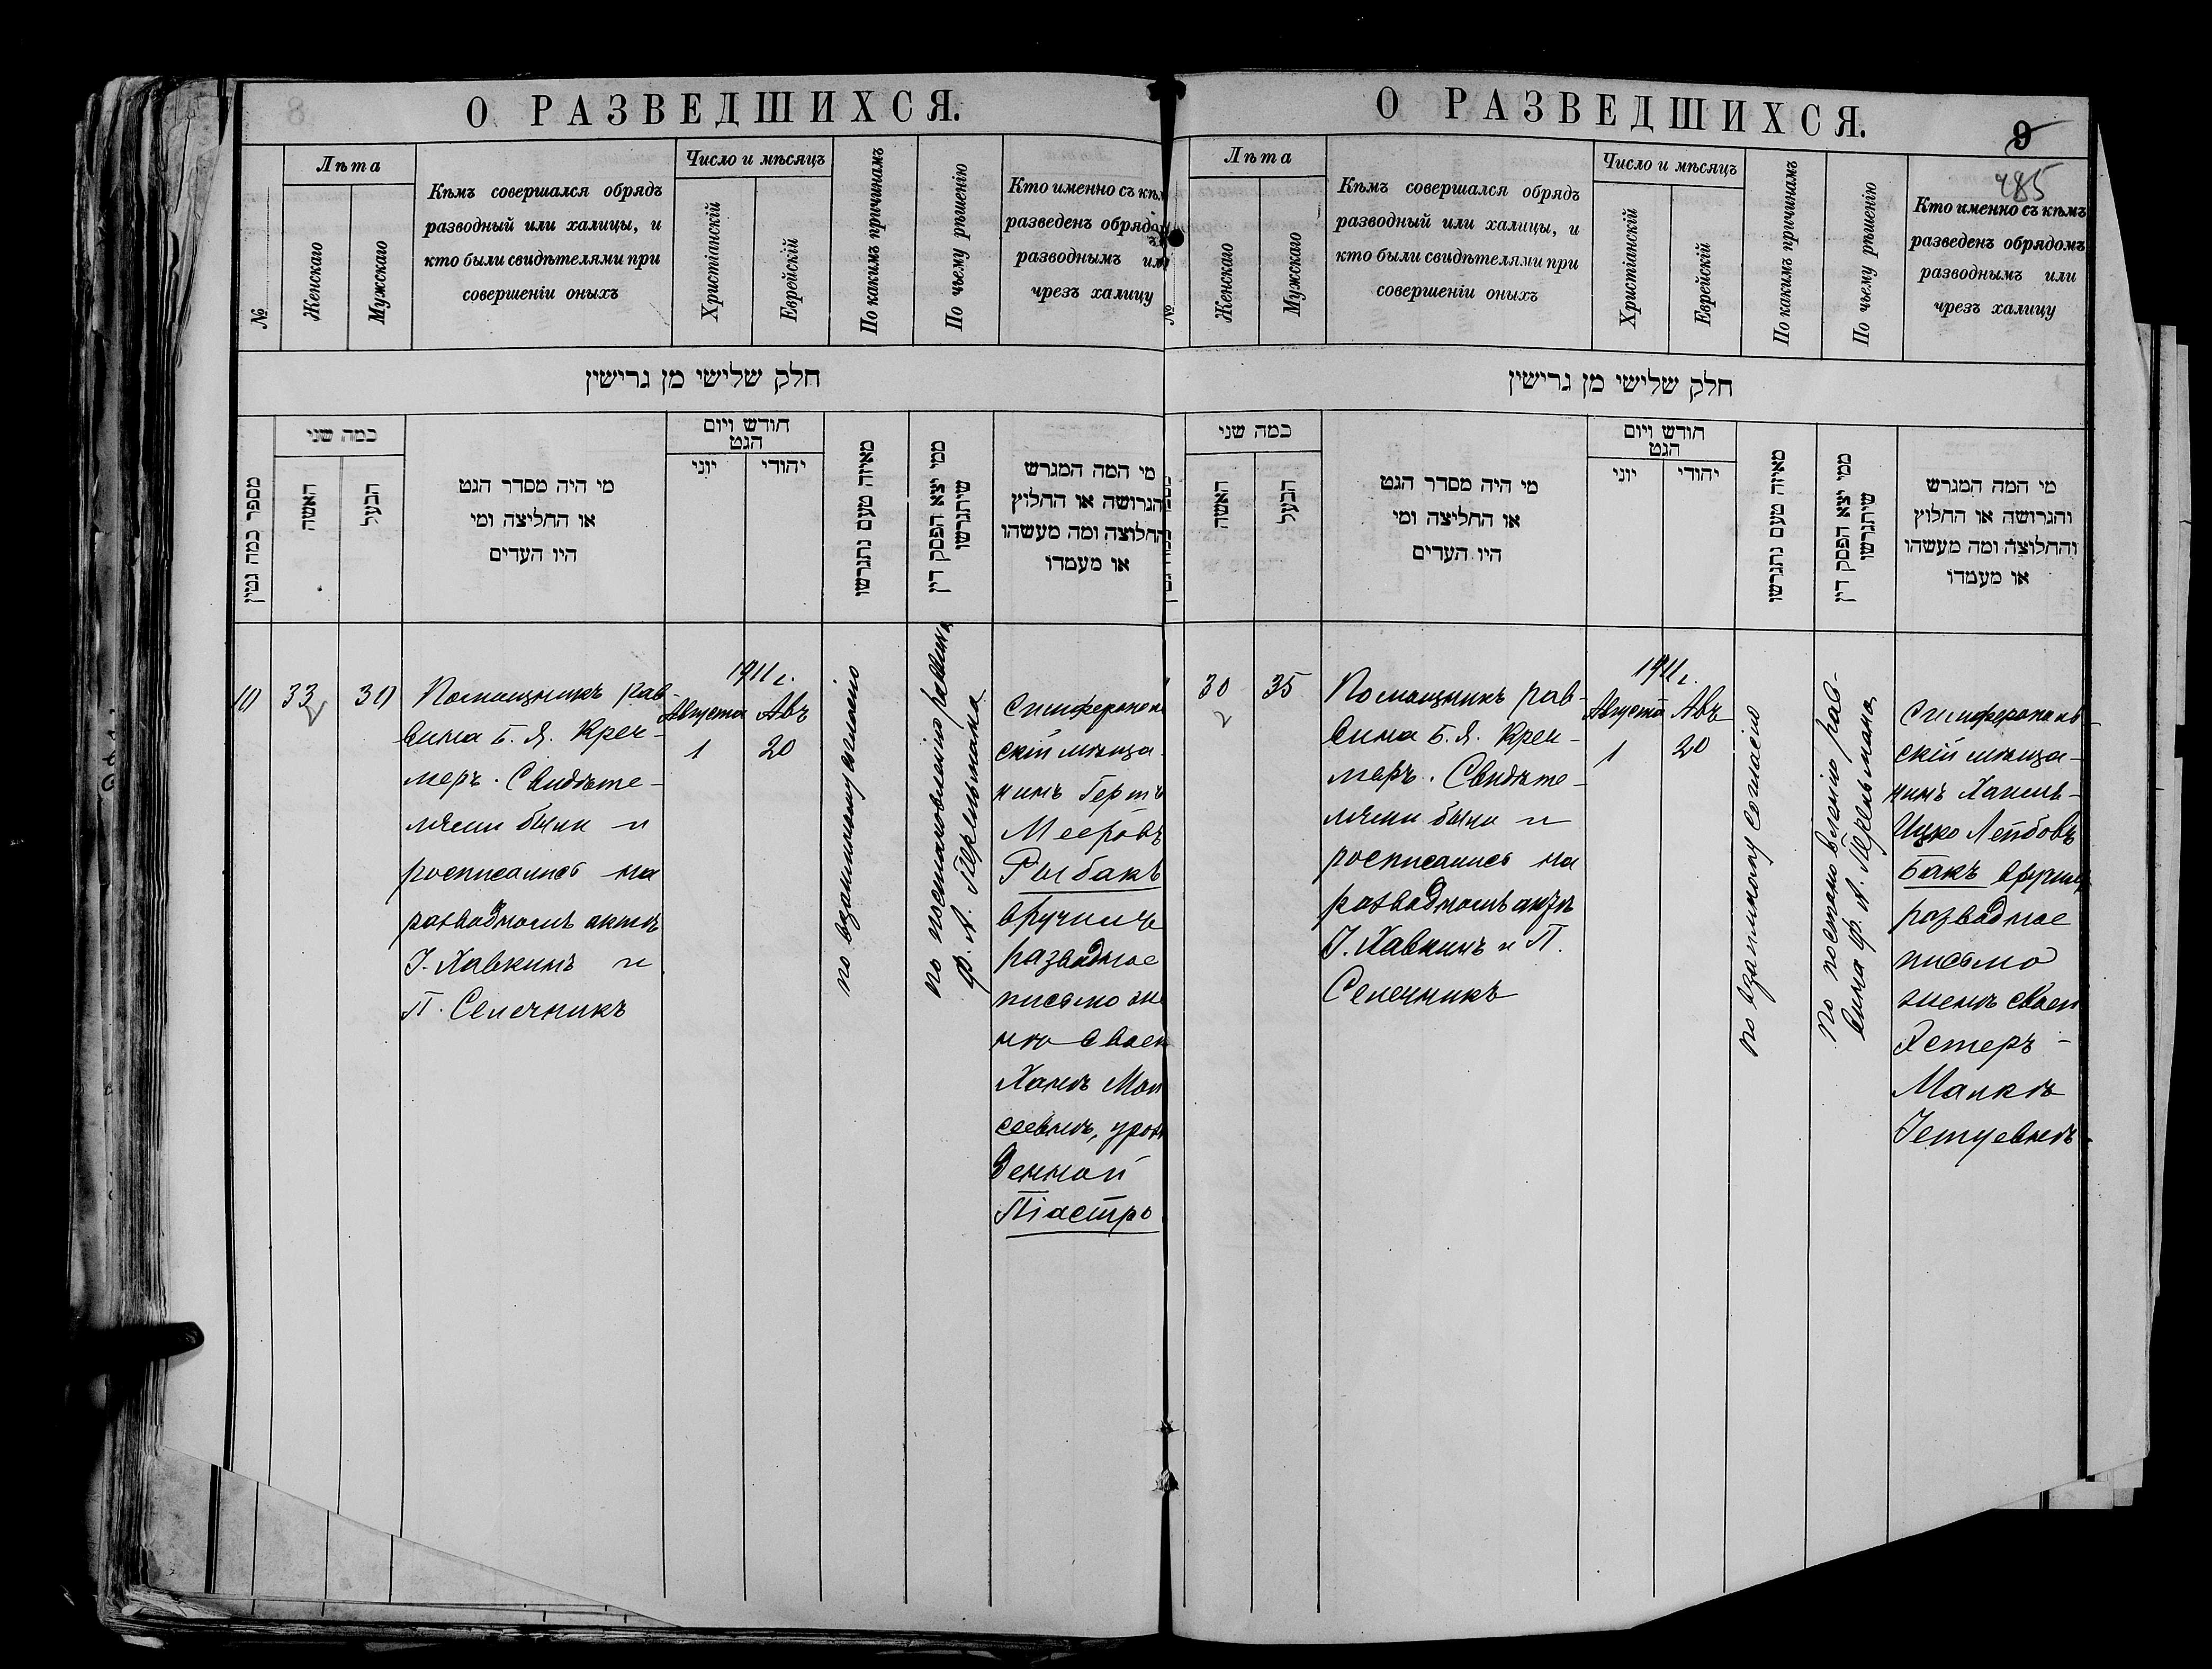 О РАЗВЕДШИХСЯ.
№
Лѣта
Женскаго
Мужскаго
Кѣмъ совершался обрядъ
разводный или халицы, и
кто были свидѣтелями при
совершеніи оныхъ
Число и мѣсяцъ
Христіанскій
Еврейскій
По какимъ причинамъ
По чьему рѣшенію
Кто именно съ кѣм
разведенъ обрядо
разводнымъ или
чрезъ халицу
חלק שלישי מן גרישין
מספר כמה גטין
כמה שני
האשה
הבעל
מי היה מסדר הגט
או החליצה ומי
היו העדים
חודש ויום
הגט
יוני
יהודי
מאיזה טעם נתגרשו
ממי יצא הפסק דין
שיתגרשו
מי המה המגרש
והגרושה או החלוץ
והחלוצה ומה מעשהו
או מעמדו
10
33
30
Помощникъ рав-
вина Б. Я. Креч-
меръ. Свидѣте-
лями были и
росписались на
разводномъ актѣ
І. Хавкинъ и
П. Селечникъ
1911 г.
Августа Авъ
1 20
по взаимному согласію
по постановленію раввина
Ф. А. Перельмана
Симферополь
скій мѣща-
нинъ Герт
Мееровъ
Рыбакъ
вручилъ
разводное
письмо же
нѣ своей
Ханѣ Мои
сеевнѣ, урож
денной
Піастро
О РАЗВЕДШИХСЯ.
9
485
№
Лѣта
Женскаго
Мужскаго
Кѣмъ совершался обрядъ
разводный или халицы, и
кто были свидѣтелями при
совершеніи оныхъ
Число и мѣсяцъ
Христіанскій
Еврейскій
По какимъ причинамъ
По чьему рѣшенію
Кто именно съ кѣмъ
разведенъ обрядомъ
разводнымъ или
чрезъ халицу
חלק שלישי מן גרישין
כמה שני
האשה
הבעל
מי היה מסדר הגט
או החליצה ומי
היו העדים
חודש ויום
הגט
יוני
יהודי
מאיזה טעם נתגרשו
ממי יצא הפסק דין
שיתגרשו
מי המה המגרש
והגרושה או החלוץ
והחלוצה ומה מעשהו
או מעמדו
30
35
Помощникъ рав-
вина Б. Я. Креч-
меръ. Свидѣте-
лями были и
росписались на
разводномъ актѣ
І. Хавкинъ и П.
Селечникъ
1911 г.
Августа Авъ
1 20
по взаимному согласію
по постановленію рав-
вина Ф. А. Перельмана
Симферополь-
скій мѣща-
нинъ Хаимъ-
Ицко Лейбовъ
Бакъ вручилъ
разводное
письмо
женѣ своей
Эстеръ-
Малкѣ